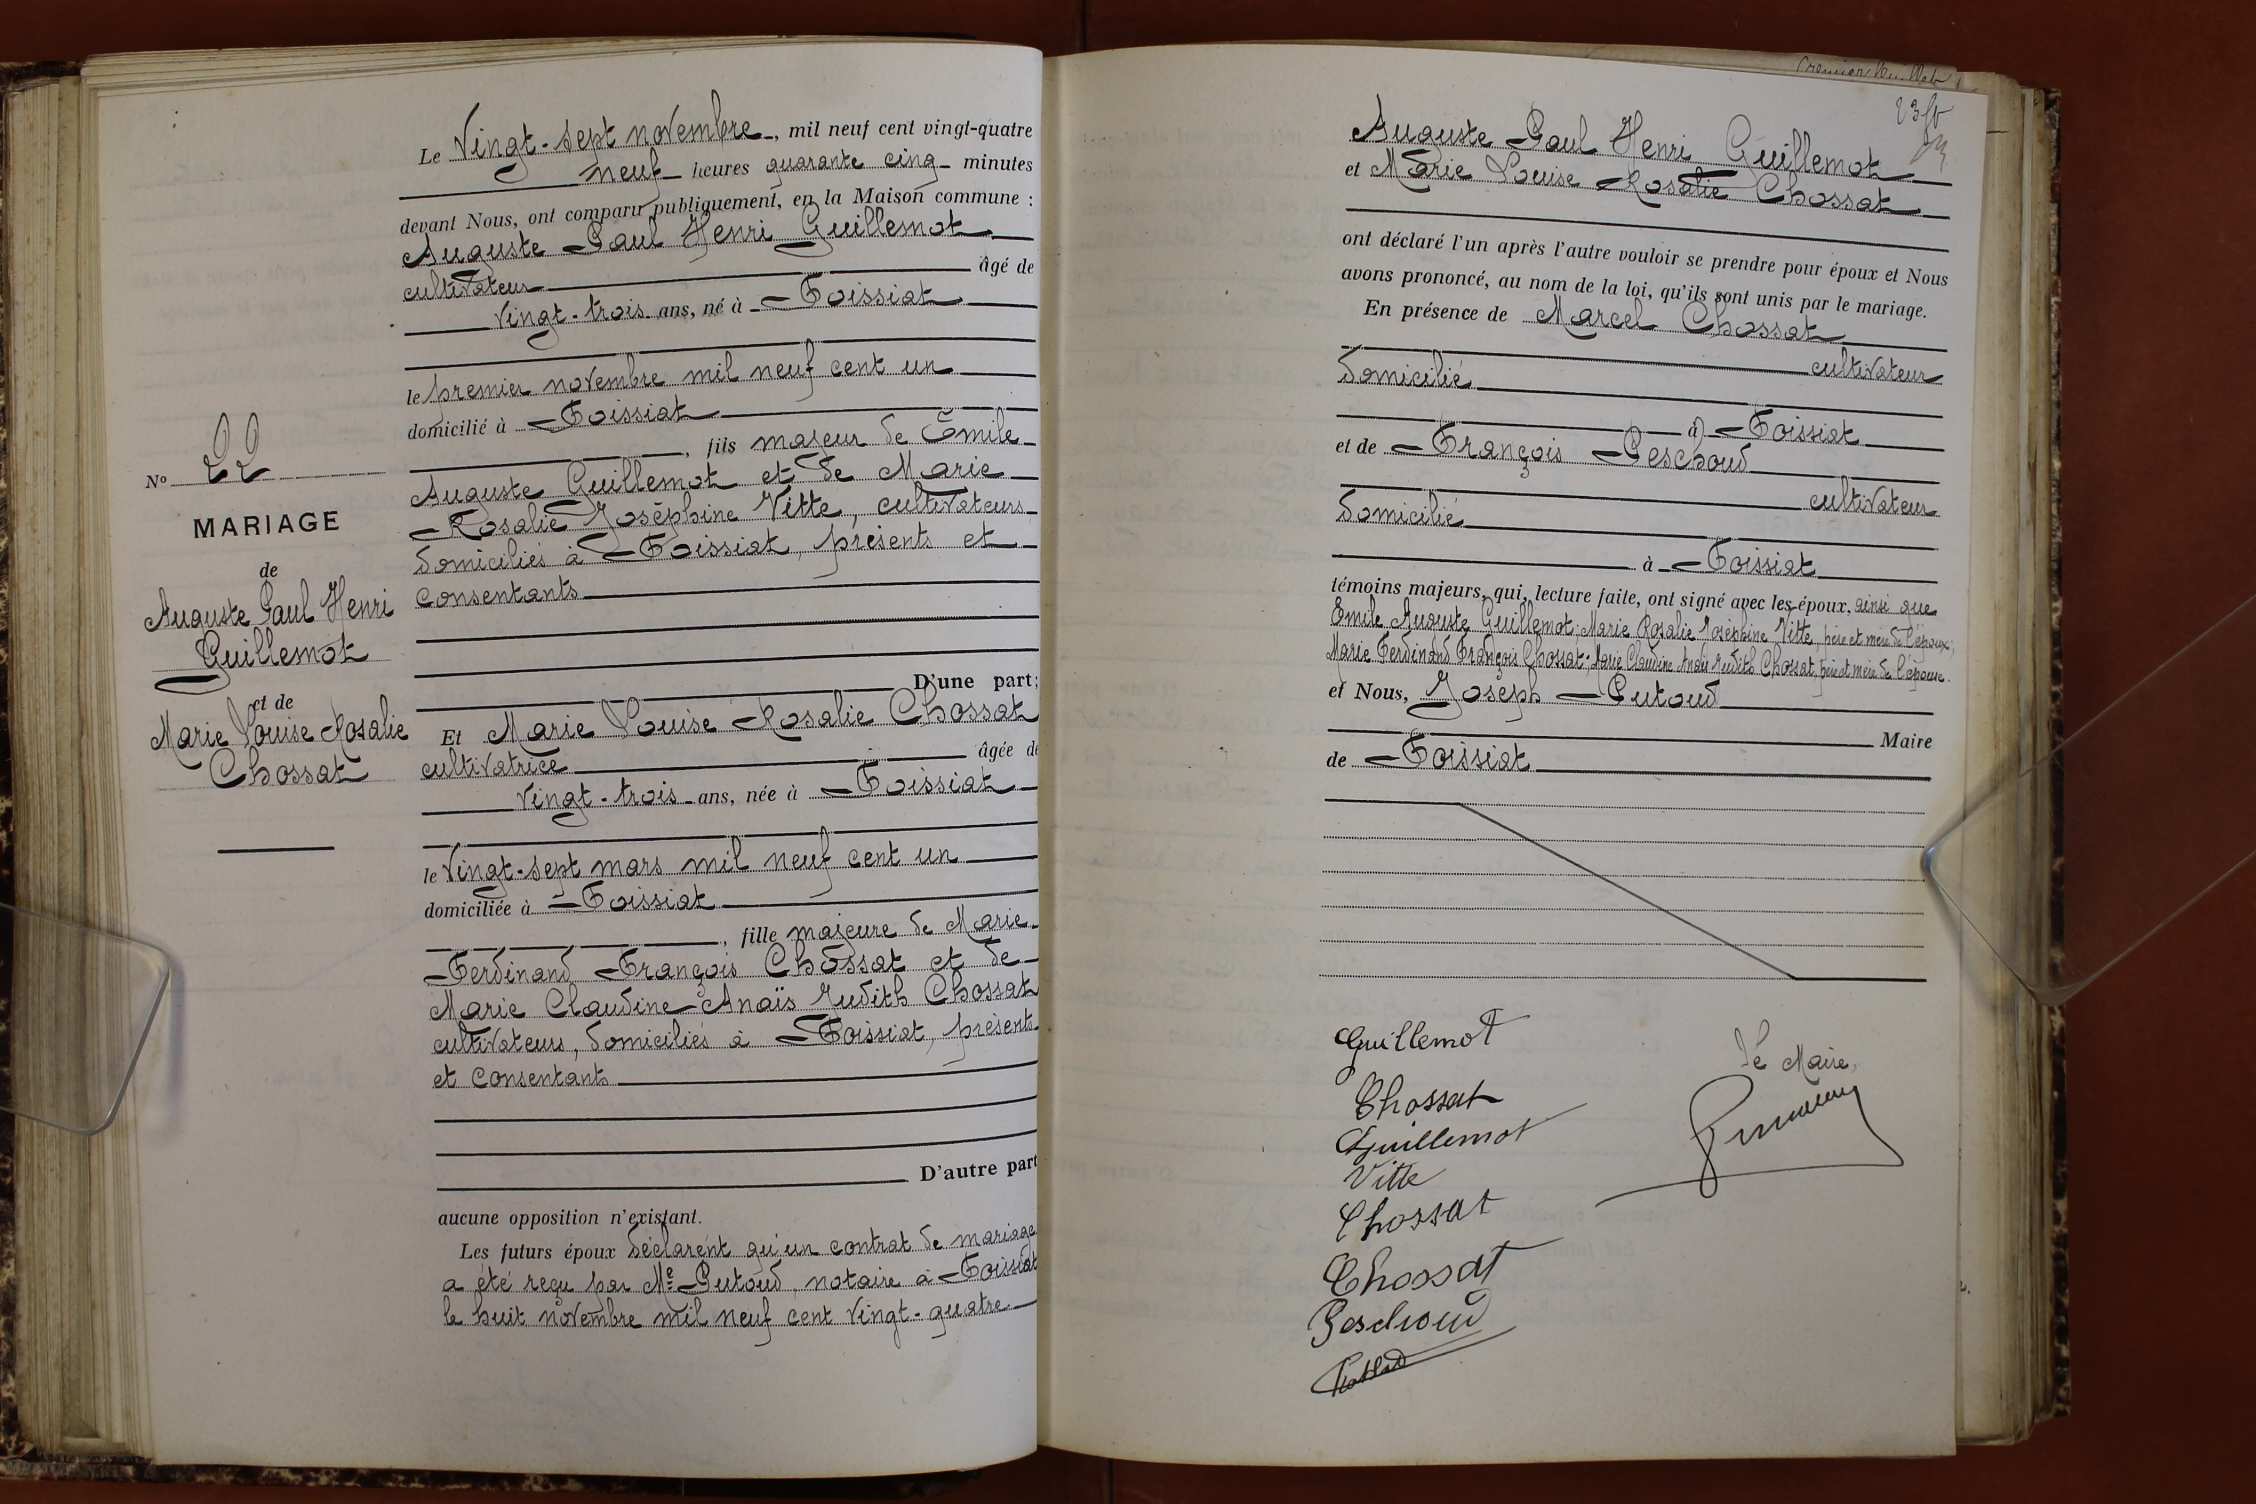 Le Vingt-sept novembre, mil neuf cent vingt-quatre
neuf heures quarante cinq minutes
devant Nous, ont comparu publiquement, en la Maison commune :
Auguste Paul Henri Guillemot
cultivateur âgé de
vingt-trois ans, né à Foissiat
le premier novembre mil neuf cent un
domicilié à Foissiat
, fils majeur de Émile
Auguste Guillemot et de Marie
Rosalie Joséphine Vitte, cultivateurs
domiciliés à Foissiat, présents et
consentants
D'une part;
Et Marie Louise Rosalie Chossat
cultivatrice âgée de
vingt-trois ans, née à Foissiat
le Vingt-sept mars mil neuf cent un
domiciliée à Foissiat
, fille majeure de Marie
Ferdinand François Chossat et de
Marie Claudine Anaïs Judith Chossat
cultivateurs, domiciliés à Foissiat, présents
et consentants
D'autre part
aucune opposition n'existant.
Les futurs époux déclarent qu'un contrat de mariage
a été reçu par Me Putoud, notaire à Foissiat
le huit novembre mil neuf cent vingt-quatre
No 22
MARIAGE
de
Auguste Paul Henri
Guillemot
et de
Marie Louise Rosalie
Chossat
23
Auguste Paul Henri Guillemot
et Marie Louise Rosalie Chossat
ont déclaré l'un après l'autre vouloir se prendre pour époux et Nous
avons prononcé, au nom de la loi, qu'ils sont unis par le mariage.
En présence de Marcel Chossat
cultivateur
domicilié
à Foissiat
et de François Peschoud
cultivateur
domicilié
à Foissiat
témoins majeurs, qui, lecture faite, ont signé avec les époux, ainsi que
Emile Auguste Guillemot; Marie Rosalie Joséphine Vitte, père et mère de l'époux;
Marie Ferdinand François Chossat; Marie Claudine Anaïs Judith Chossat, père et mère de l'épouse.
et Nous, Joseph Putoud
Maire
de Foissiat
Guillemot
Chossat
Guillemot
Vitte
Chossat
Chossat
Peschoud
Le Maire,